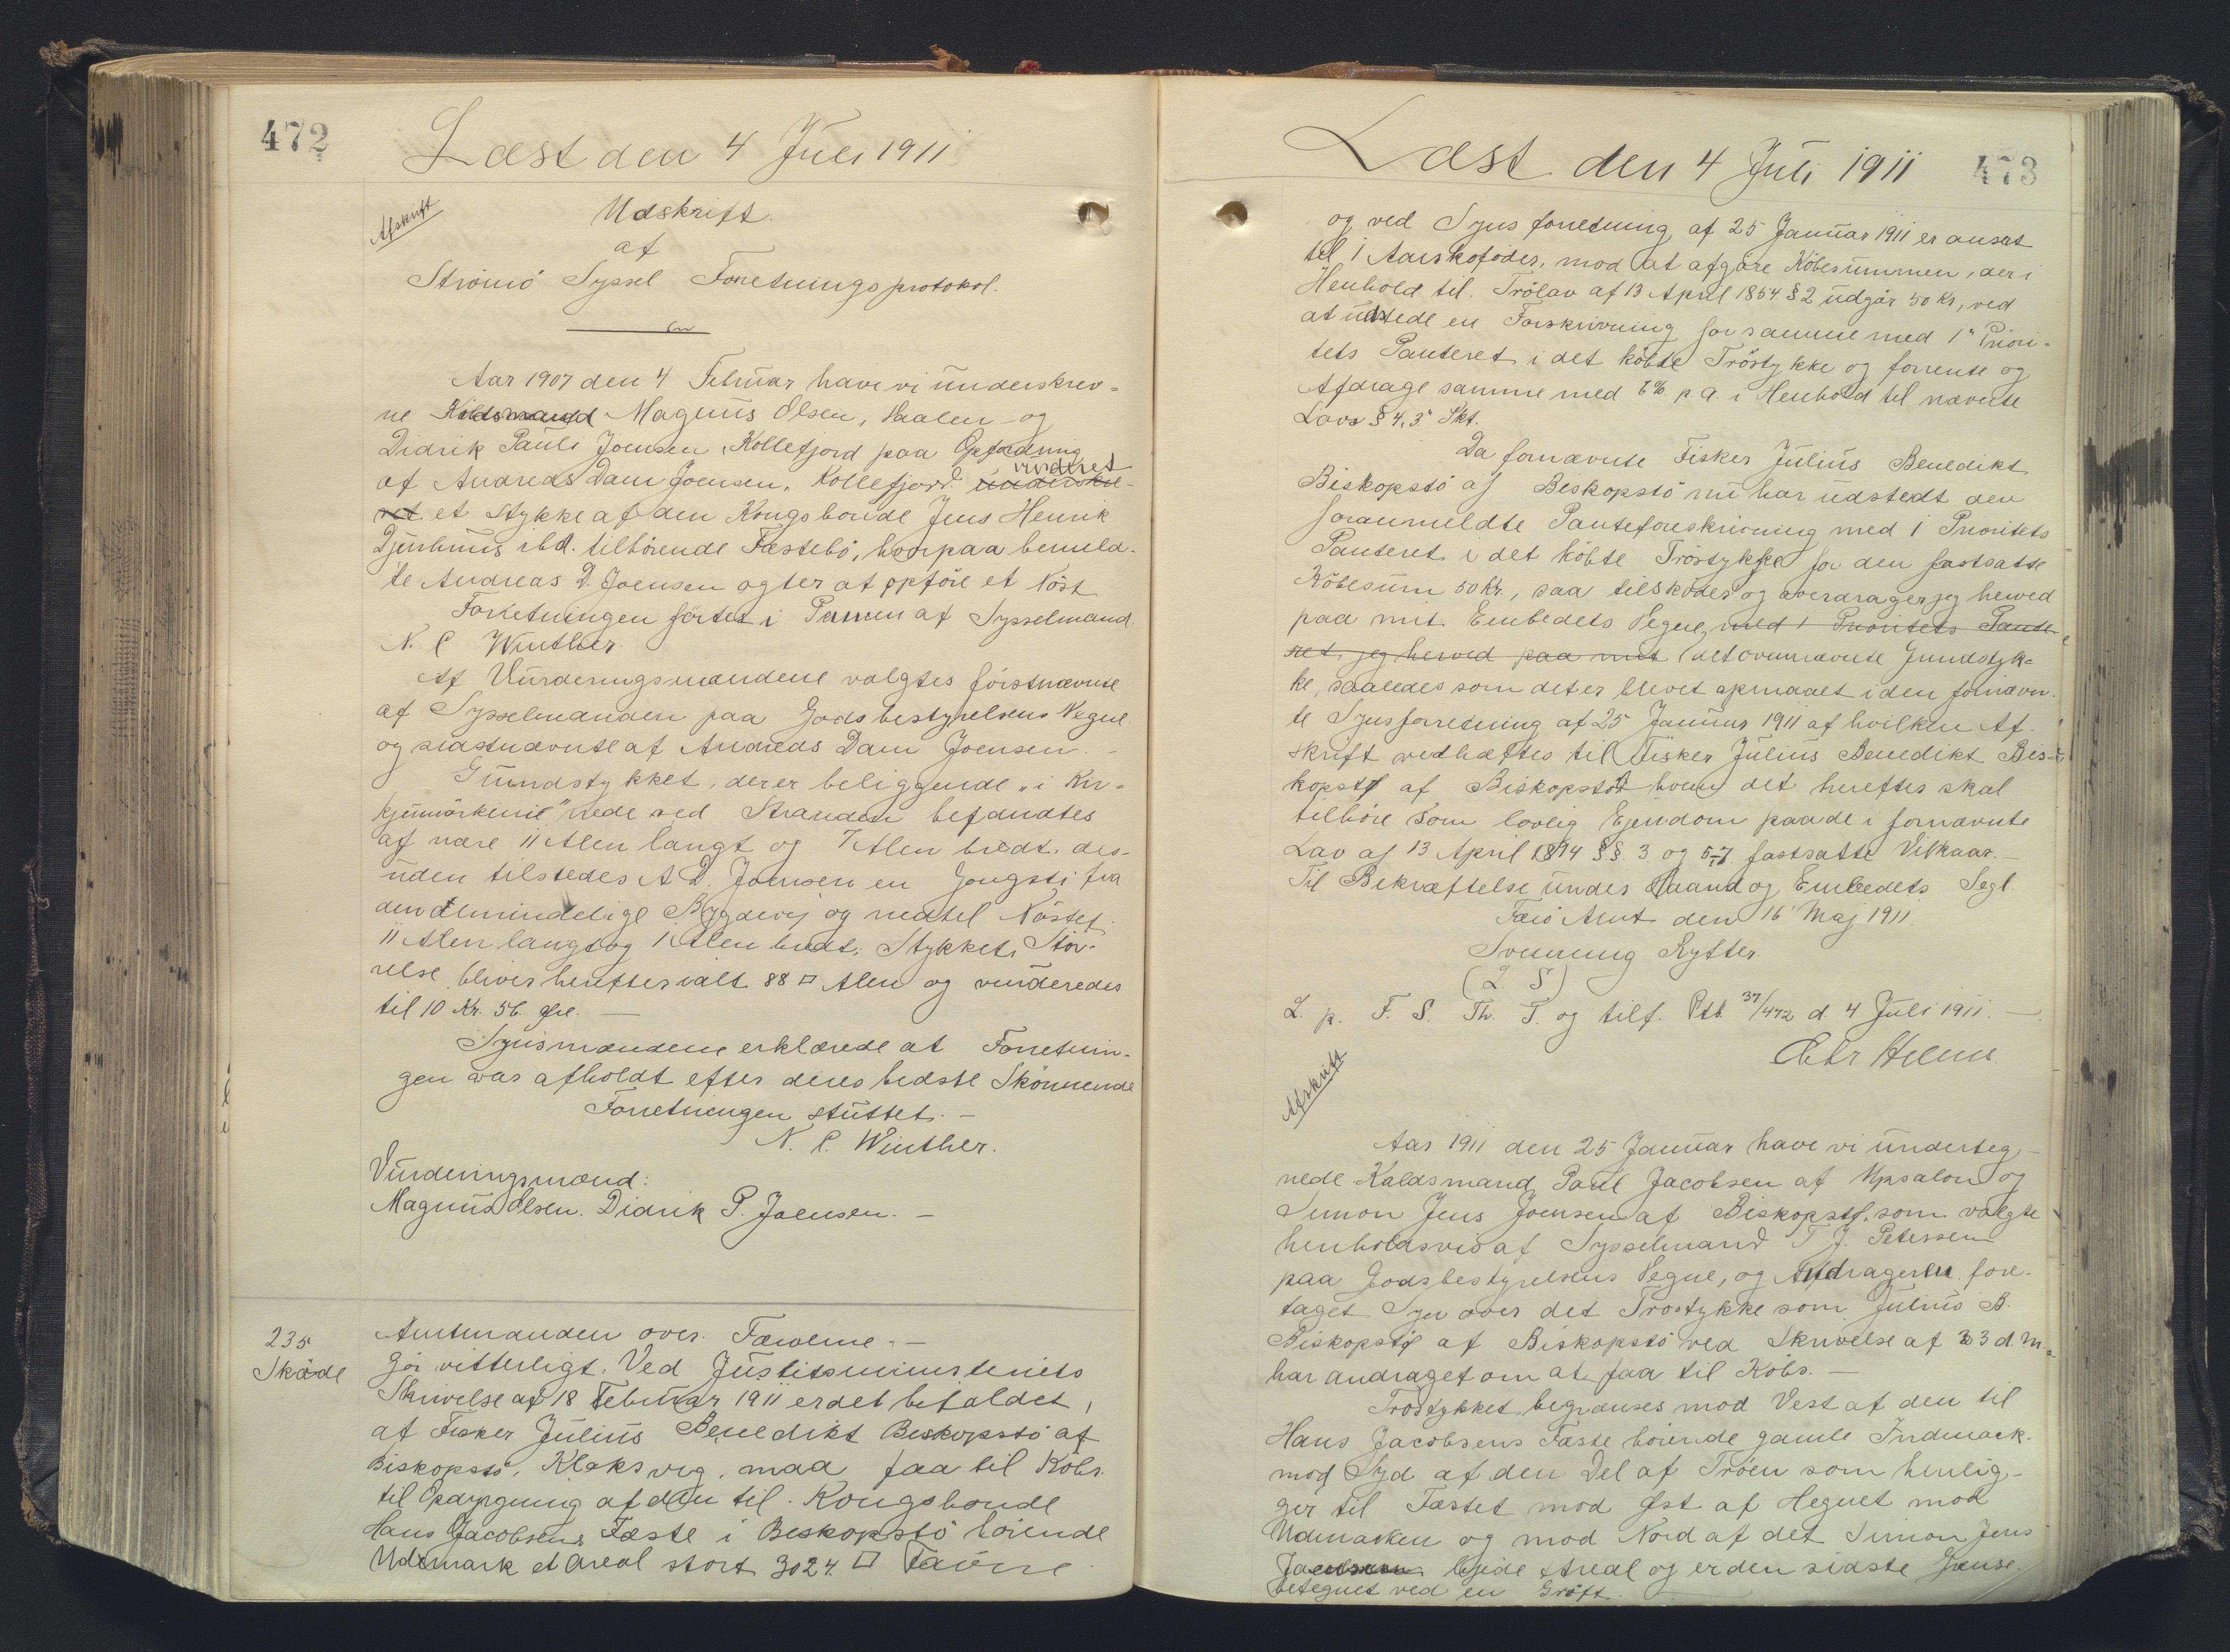 472
Læst den 4 Juli 1911
Afskrift
Udskrift.
af
Strömö Syssel Forretningsprotokol.
Aar 1907 den 4 Februar have vi underskrev-
ne Kaldsmand Magnus Olsen, Vaalen og
Didrik Pauli Joensen, Kollefjord paa Opfordring
af Andreas Dam Joensen, Kollefjord vurderet
et Stykke af den Kongsbonde Jens Henrik
Djurhuus ibd. tilhörende Fæstebö, hvorpaa bemeld-
te Andreas D. Joensen agter at opföre et Nöst
Forretningen förtes i Pennen af Sysselmand
N. C Winther.
Af Vurderingsmændene valgtes förstnævnte
af Sysselmanden paa Godsbestyrelsens Vegne
og sidstnævnte af Andreas Dam Joensen. -
Grundstykket, der er beliggende "i Kir-
kjumörkinni" nede ved Stranden befandtes
at være 11 Alen langt og 7 Alen bredt. des-
uden tilstedes A D. Joensen en Gangsti fra
den almindelige Bygdevej og ned til Nöstet
11 Alen lang og 1 Alen bred. Stykkets Stör-
relse bliver herefter ialt 88 □ Alen og vurderedes
til 10 Kr. 56 Öre. —
Synsmændene erklærede at Forretnin-
gen var afholdt efter deres bedste Skönnende
Forretningen sluttet. -
N. C. Winther.
Vurderingsmænd:
Magnus Olsen. Didrik P. Joensen. -
235
Sköde
Amtmanden over Færöerne. —
Gör vitterligt. Ved Justitsministeriets
Skrivelse af 18 Februar 1911 er det bifaldet,
at Fisker Julius Benedikt Biskopstö af
Biskopstö, Klaksvig, maa faa til Köbs
til Opdyrgning af den til Kongsbonde
Hans Jacobsens Fæste i Biskopstö höiende
Udmark et Areal stort 3024 □ Favne
Læst den 4 Juli 1911
473
og ved Synsforretning af 25 Januar 1911 er ansat
til 1 Aarskofoder, mod at afgöre Köbesummen, der i
Henhold til Trölov af 13 April 1854 § 2 udgör 50 Kr, ved
at udstede en Forskrivning for samme med 1' Priori-
tets Panteret i det köbte Tröstykke og forrente og
Afdrage samme med 6% p a. i Henhold til nævnte
Lovs § 4, 3' Pkt.
Da fornævnte Fisker Julius Benedikt
Biskopstö af Biskopstö nu har udstedt den
foranmeldte Panteforeskrivning med 1 Prioritets
Panteret i det köbte Tröstykke for den fastsatte
Köbesum 50 Kr., saa tilsköder og overdrager jeg herved
paa mit Embedets Vegne, med 1 Prioritets Pante-
ret, jeg herved paa mit det ovennævnte Jundstyk-
ke, saaledes som det er blevet opmaalt i den fornævn-
te Synsforretning af 25 Januar 1911 af hvilken Af-
skrift vedhæftes til Fisker Julius Benedikt Bis-
kopstö af Biskopstö hvem det herefter skal
tilhöre som lovlig Ejendom paa de i fornævnte
Lov af 13 April 1894 §§. 3 og 5-7 fastsatte Vilkaar. -
Til Bekræftelse under Haand og Embedets Segl.
Færö Amt den 16' Maj 1911.
Svenning Rytter.
(L S)
L. p. F. S. Th. T. og tilf. Ptb. 37/472 d. 4 Juli 1911. —
Chr Helms
Afskrift
Aar 1911 den 25 Januar have vi underteg-
nede Kaldsmand Poul Jacobsen af Upsalon og
Simon Jens Joensen af Biskopstö. som valgte
henholdsvis af Sysselmand T J. Petersen
paa Godsbestyrelsens Vegne, og Andrageren fore-
taget Syn over det Tröstykke som Julius B.
Biskopstö af Biskopstö ved Skrivelse af 23 d. M.
har andraget om at faa til Köbs. —
Tröstykket begrænses mod Vest af den til
Hans Jacobsens Fæste höiende gamle Indmark.
mod Syd af den Del af Tröen som henlig-
ger til Fæstet mod Öst af Hegnet mod
Udmarken og mod Nord af det Simon Jens
Jacobsen ejede Areal og er den sidste Grænse
betegnet ved en Gröft.